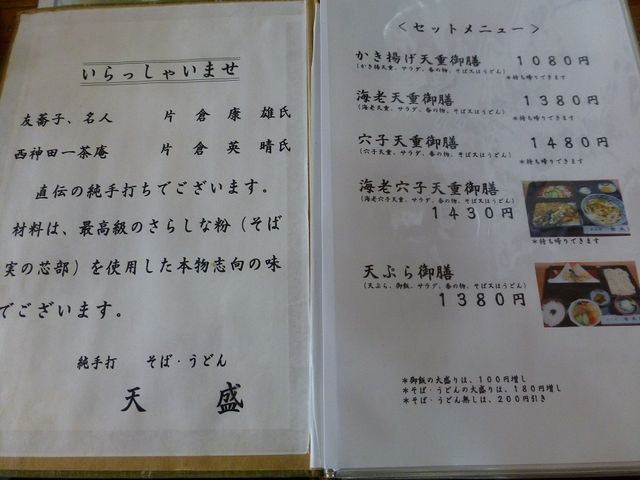 いらっしゃいませ
友蕎子、名人　片倉康雄氏
西神田一茶庵　片倉英晴氏
直伝の純手打ちでございます。
材料は、最高級のさらしな粉（そば
実の芯部）を使用した本物志向の味
でございます。
純手打　そば・うどん
天　盛
＜セットメニュー＞
かき揚げ天重御膳　1080円
（かき揚天重、サラダ、香の物、そば又はうどん）
＊持ち帰りできます
海老天重御膳　1380円
（海老天重、サラダ、香の物、そば又はうどん）
＊持ち帰りできます
穴子天重御膳　1480円
（穴子天重、サラダ、香の物、そば又はうどん）
＊持ち帰りできます
海老穴子天重御膳
（海老穴子天重、サラダ、香の物、そば又はうどん）
1430円
＊持ち帰りできます
天ぷら御膳
（天ぷら、御飯、サラダ、香の物、そば又はうどん）
1380円
＊御飯の大盛りは、100円増し
＊そば・うどんの大盛りは、180円増し
＊そば・うどん無しは、200円引き